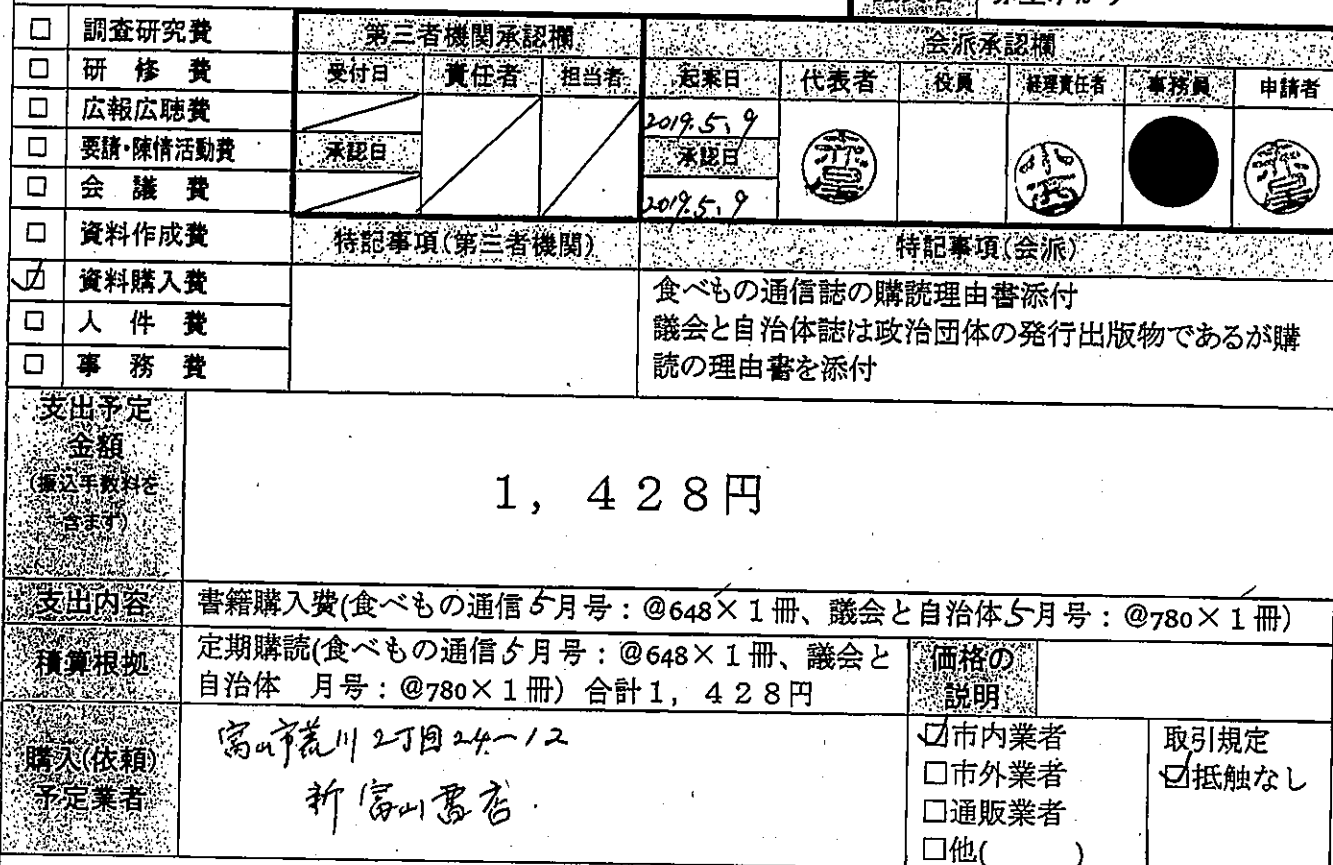 □ 調査研究費
□ 研修費
□ 広報広聴費
□ 要請・陳情活動費
□ 会議費
□ 資料作成費
☑ 資料購入費
□ 人件費
□ 事務費
第三者機関承認欄
受付日 責任者 担当者
承認日
会派承認欄
起案日 代表者 役員 経理責任者 事務員 申請者
2019.5.9
承認日
2019.5.9
特記事項(第三者機関)
特記事項(会派)
食べもの通信誌の購読理由書添付
議会と自治体誌は政治団体の発行出版物であるが購
読の理由書を添付
支出予定
金額
(振込手数料を
含まず)
1,428円
支出内容
書籍購入費(食べもの通信5月号:@648×1冊、議会と自治体5月号:@780×1冊)
積算根拠
定期購読(食べもの通信5月号:@648×1冊、議会と
自治体 月号:@780×1冊) 合計1,428円
価格の
説明
購入(依頼)
予定業者
富山市荒川2丁目24-12
新富山書店
☑市内業者
□市外業者
□通販業者
□他( )
取引規定
☑抵触なし